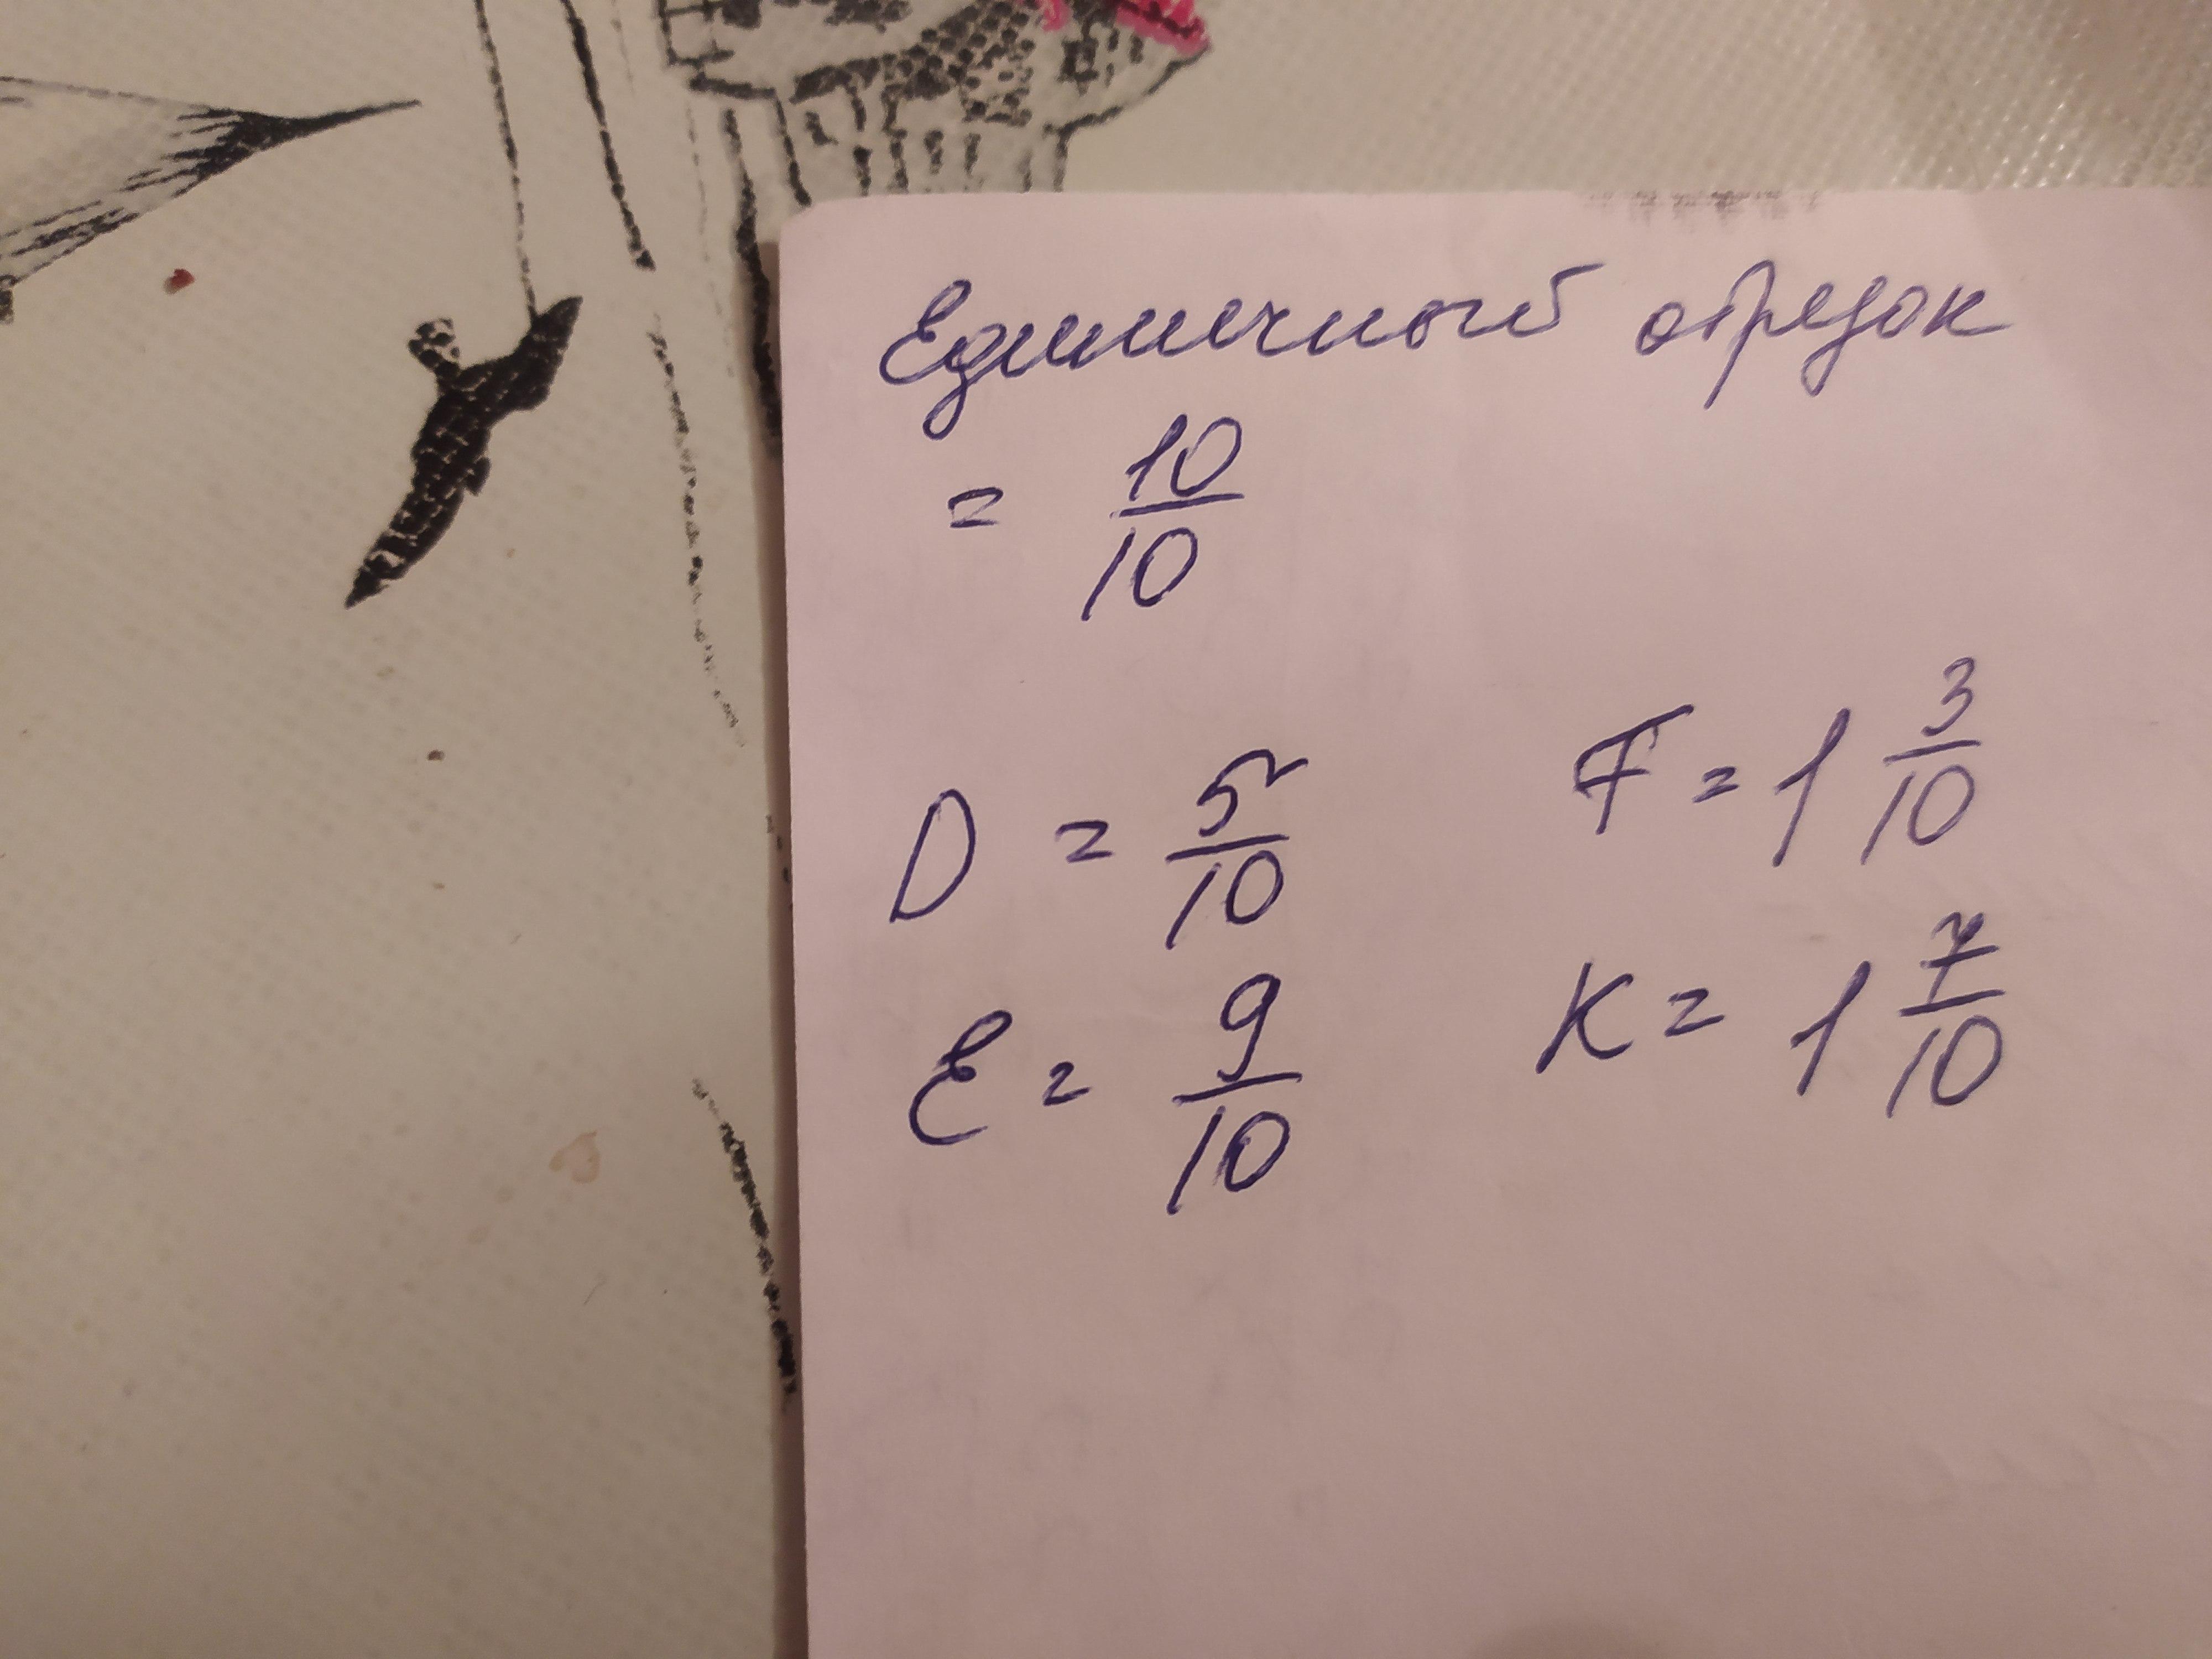 Единичный отрезок
= 10/10
D = 5/10
F = 1 3/10
E = 9/10
K = 1 7/10